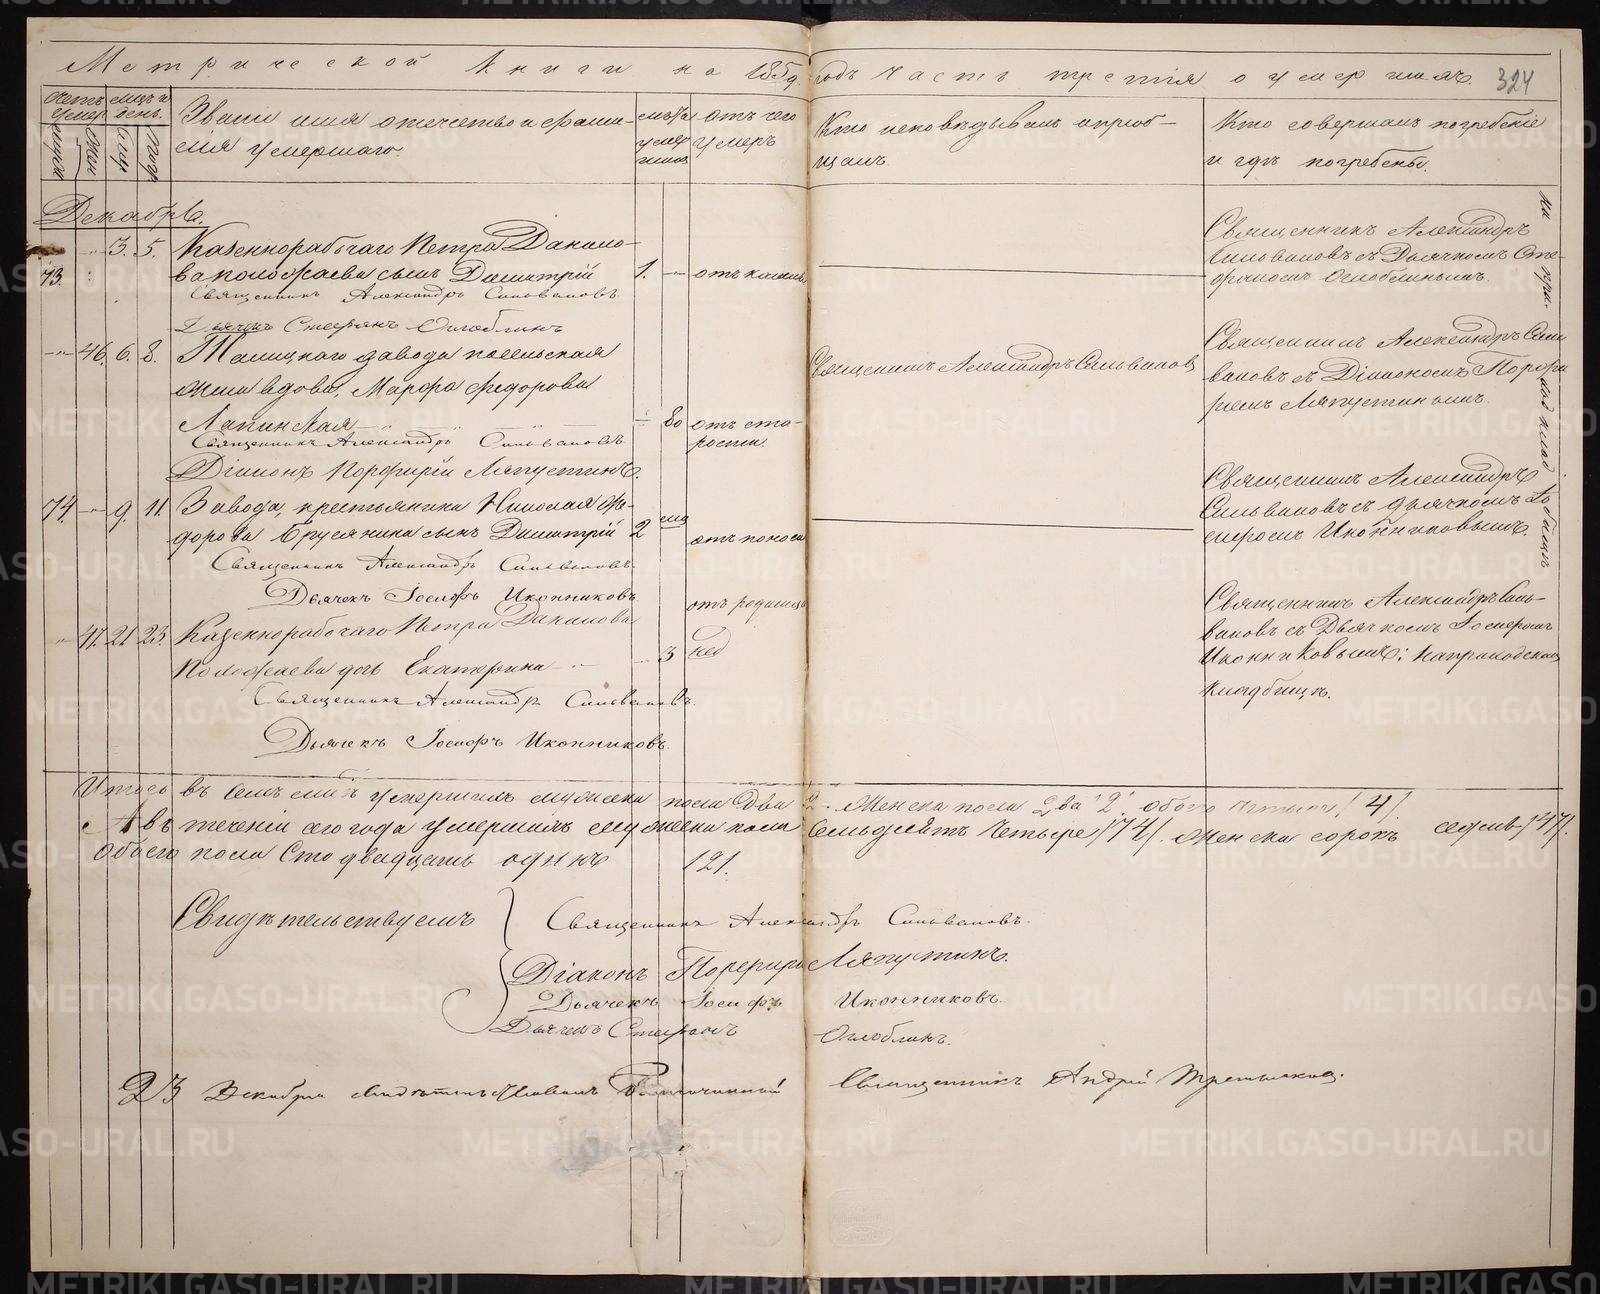 Метрической Книги на 1859 годъ Часть третія о умершихъ. 324
Счетъ умер. мужск. жен.
мцъ и день. смер. погр.
Званіе имя отечество и фами-
лія умершаго.
лѣта умер шаго
отъ чего умеръ
Кто исповѣдывалъ и пріоб-
щалъ.
Кто совершалъ погребеніе
и гдѣ погребены.
Декабрь.
73. 3. 5. Казеннорабочаго Петра Данило-
ва Положаева сынъ Димитрій 1. отъ кашля
Священникъ Александръ Сильвановъ.
Дьячекъ Стефанъ Оглоблинъ
Священникъ Александръ
Сильвановъ съ Дьячкомъ Сте-
фаномъ Оглоблинымъ.
46. 6. 8. Талицкаго завода
жена вдова, Марфа Федорова
Лапинская 80 отъ ста-
рости.
Священникъ Александръ Сильвановъ
Діаконъ Порфирій Ляпустинъ.
Священникъ Александръ Сильвановъ
Священникъ Александръ Силь
вановъ съ Діакономъ Порфи
ріемъ Ляпустинымъ.
74. 9. 11. Завода, крестьянина Николая Фе-
дорова Брусянина сынъ Димитрій 2 отъ поноса
Священникъ Александръ Сильвановъ.
Дьячекъ Іосифъ Иконниковъ
Священникъ Александръ
Сильвановъ съ дьячкомъ Іо
сифомъ Иконниковымъ.
47. 21. 23. Казеннорабочаго Петра Данилова
Положаева дочь Екатерина 3 нед отъ родимца
Священникъ Александръ Сильвановъ.
Дьячекъ Іосифъ Иконниковъ.
Священникъ Александръ Силь-
вановъ съ Дьячкомъ Іосифомъ
Иконниковымъ; на приходскомъ
кладбищѣ.
на при. ход клад бищѣ
Итого въ семъ мцѣ умершихъ мужеска пола Два 2. Женска пола Два "2", обоего четыре /4/.
А въ теченіи сего года умершихъ мужеска пола Семьдесятъ Четыре /74/. Женска сорокъ седмь /47/.
Обоего пола Сто двадцать одинъ 121.
Свидѣтельствуемъ
Священникъ Александръ Сильвановъ.
Діаконъ Порфирій Ляпустинъ.
Дьячекъ Іосифъ Иконниковъ.
Дьячекъ Стефанъ Оглоблинъ.
23 Декабря свидѣтельствовалъ Благочинный Священникъ Андрей Третьяковъ.
METRIKI.GASO-URAL.RU